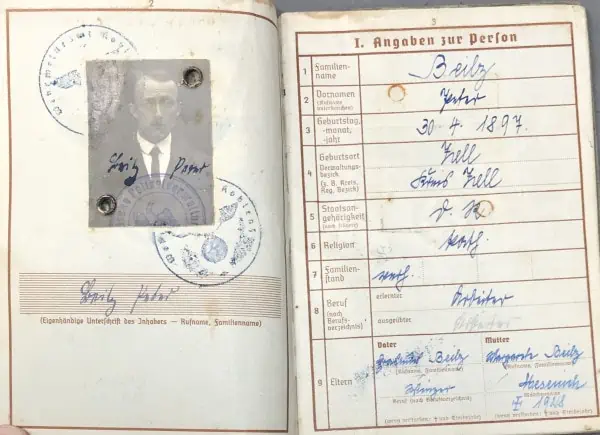 2
Wehrmeldeamt
Beilz Peter
Beilz Peter
(Eigenhändige Unterschrift des Inhabers — Rufname, Familienname)
3
I. Angaben zur Person
1 Familienname Beilz
2 Vornamen (Rufname unterstreichen) Peter
3 Geburtstag, -monat, -jahr 30. 4. 1897.
4 Geburtsort Zell
Verwaltungsbezirk (z. B. Kreis, Reg. Bezirk) Kreis Zell
5 Staatsangehörigkeit D. R.
6 Religion kath.
7 Familienstand verh.
8 Beruf (nach Berufsverzeichnis) erlernter Arbeiter
ausgeübter Arbeiter
Vater Mutter
Beilz Margarete Beilz
(Rufname, Familienname) (Rufname, Familienname)
9 Eltern Winzer
Beruf (nach Berufsverzeichnis) Mädchenname
1928
(wenn verstorben: † und Sterbejahr) (wenn verstorben: † und Sterbejahr)